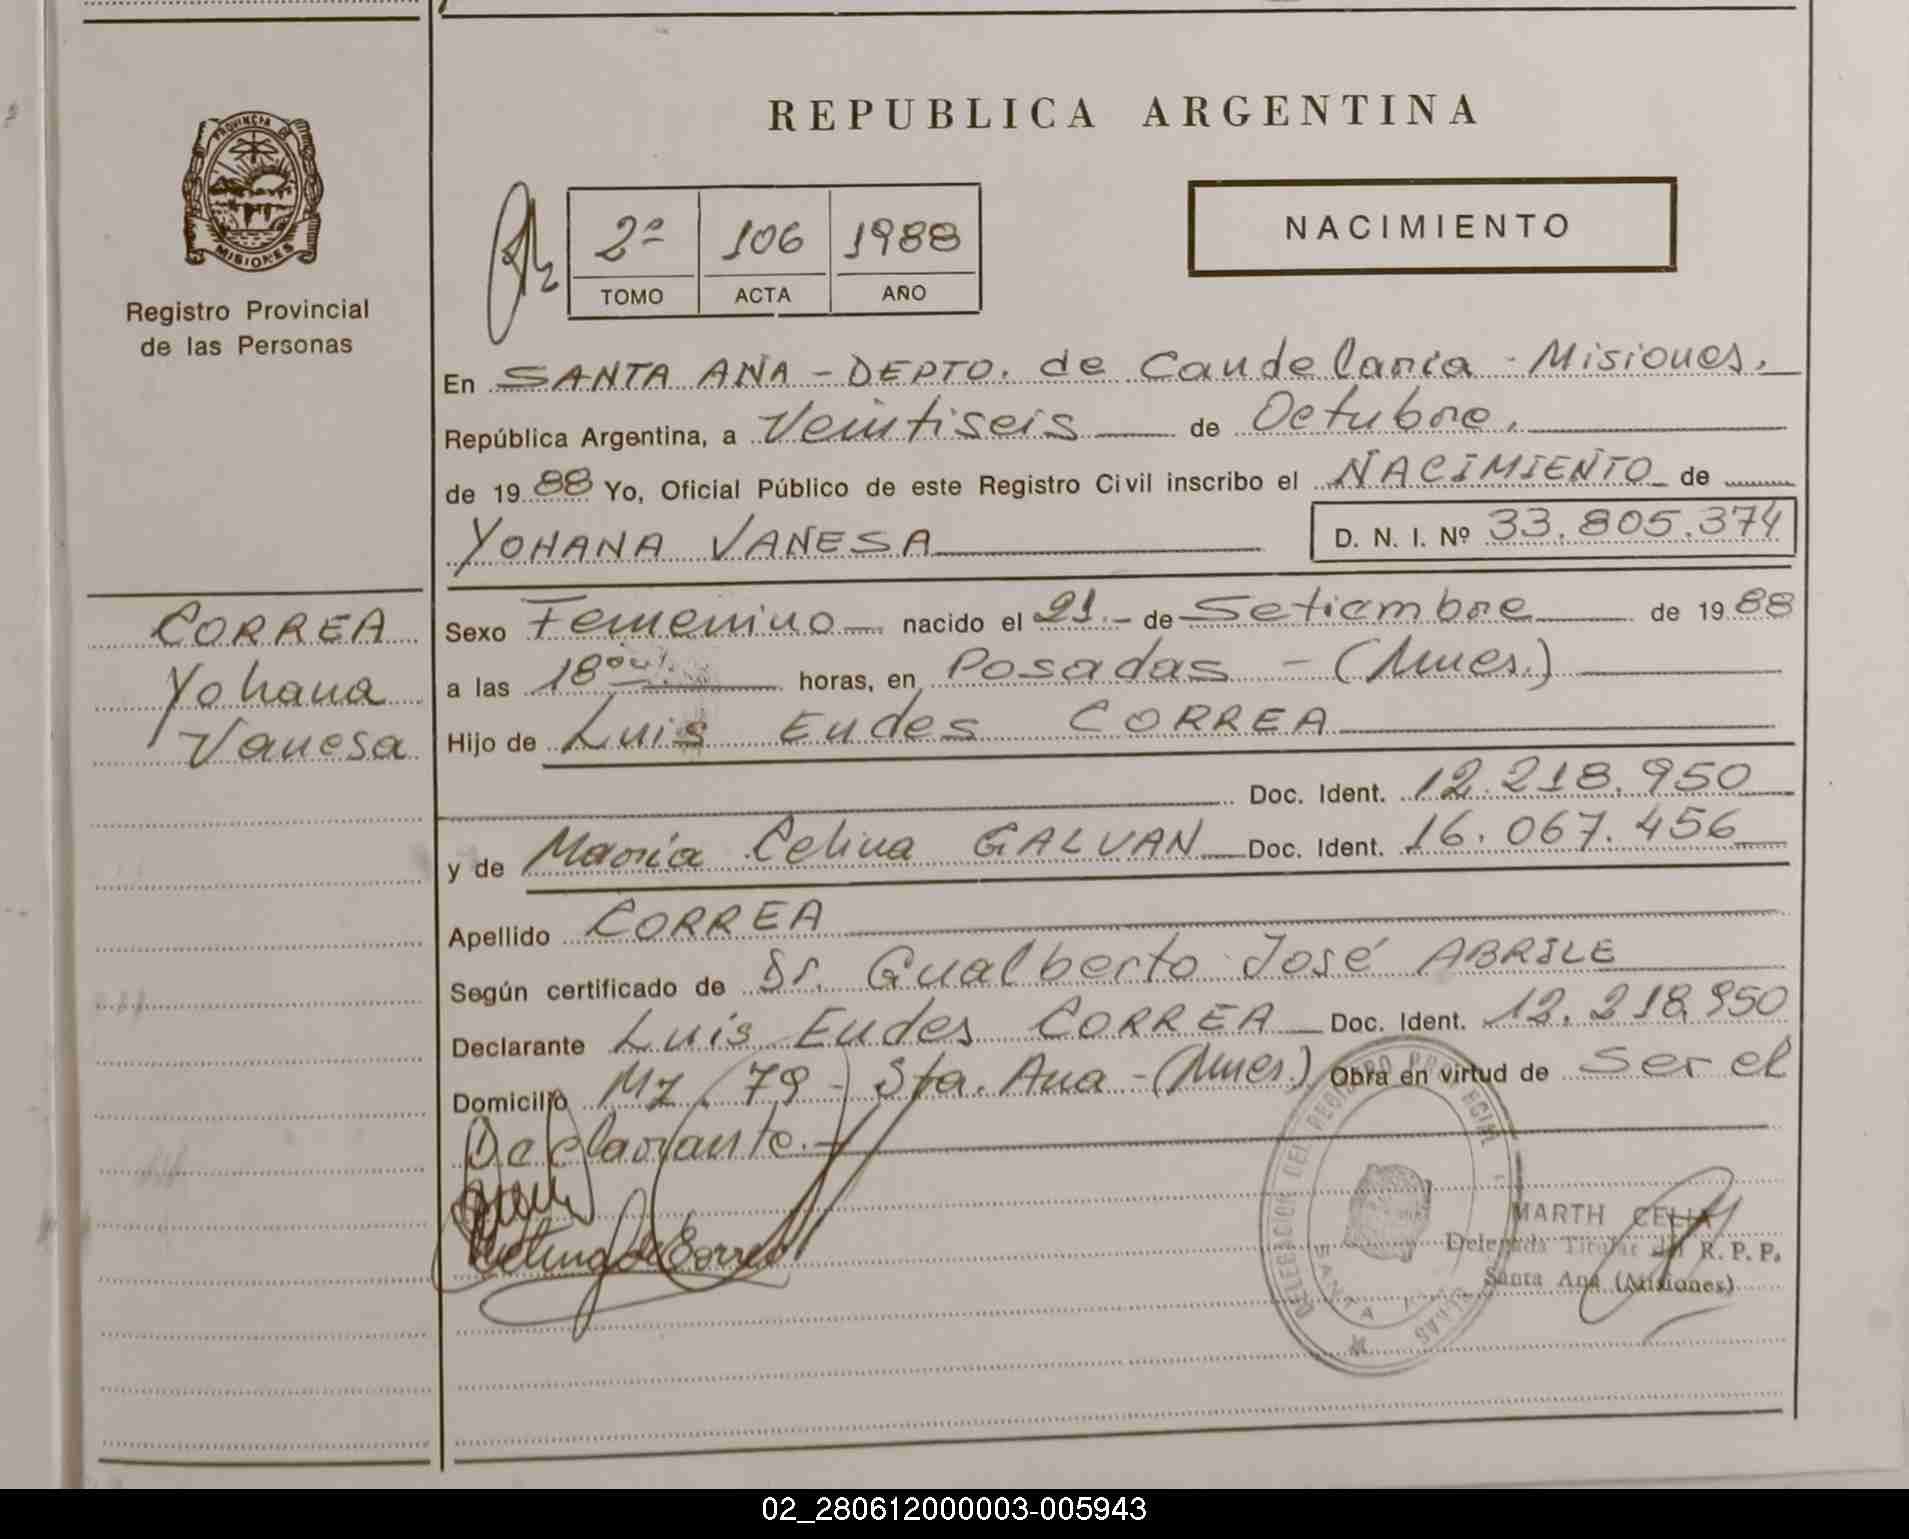 REPUBLICA ARGENTINA
PROVINCIA DE
MISIONES
Registro Provincial
de las Personas
2ª 106 1988
TOMO ACTA AÑO
NACIMIENTO
En SANTA ANA - DEPTO. de Candelaria - Misiones.
República Argentina, a Veintiseis de Octubre.
de 1988 Yo, Oficial Público de este Registro Civil inscribo el NACIMIENTO de
YOHANA VANESA D. N. I. Nº 33.805.374
CORREA
Yohana
Vanesa
Sexo Femenino nacido el 21.- de Setiembre de 1988
a las 18 horas, en Posadas - (Mnes.)
Hijo de Luis Eudes CORREA
Doc. Ident. 12.218.950
y de Maria Celina GALVAN Doc. Ident. 16.067.456
Apellido CORREA
Según certificado de Dr. Gualberto José ABRILE
Declarante Luis Eudes CORREA Doc. Ident. 12.218.950
Domicilio Mz. 79 - Sta. Ana - (Mnes.) Obra en virtud de Ser el
Declarante.-
Celina de Correa
DELEGACION DEL REGISTRO PROVINCIAL
SANTA
MARTH CELIA
Delegada Titular del R. P. P.
Santa Ana (Misiones)
02_280612000003-005943